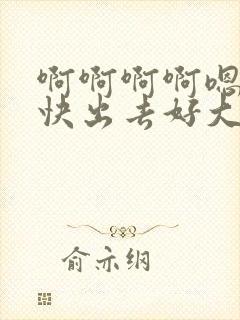 啊啊啊啊嗯
快出去好大
俞亦纲